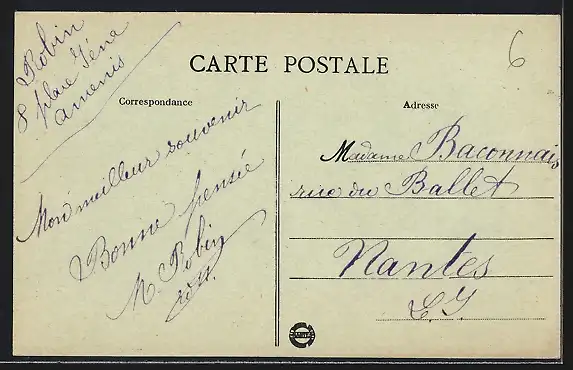 Robin
8 place Géne
Amenis
6
CARTE POSTALE
Correspondance
Mon meilleur souvenir
Bonne pensée
M. Robin
Adresse
Madame Baconnais
rue du Ballet
Nantes
L. I.